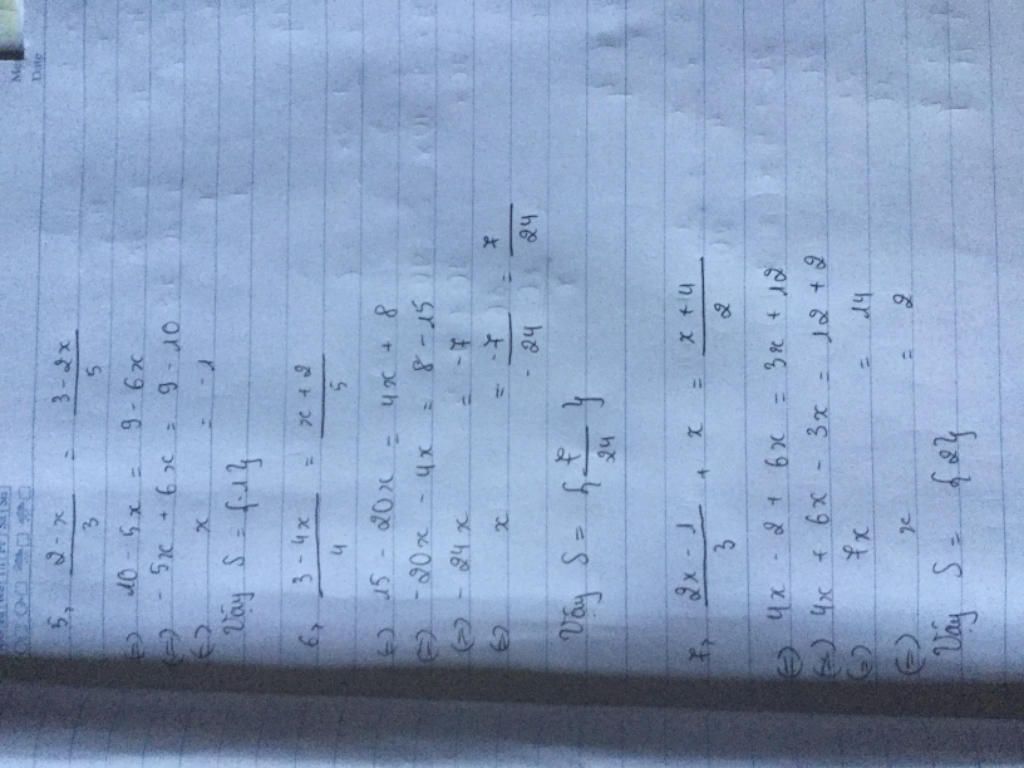 Date
5, (2-x)/3 = (3-2x)/5
(=) 10 - 5x = 9 - 6x
(=) - 5x + 6x = 9 - 10
(=) x = -1
Vậy S = {-1}
6, (3-4x)/4 = (x+2)/5
(=) 15 - 20x = 4x + 8
(=) - 20x - 4x = 8 - 15
(=) - 24x = -7
(=) x = -7/-24 = 7/24
Vậy S = {7/24}
7, (2x-1)/3 + x = (x+4)/2
(=) 4x - 2 + 6x = 3x + 12
(=) 4x + 6x - 3x = 12 + 2
(=) 7x = 14
(=) x = 2
Vậy S = {2}